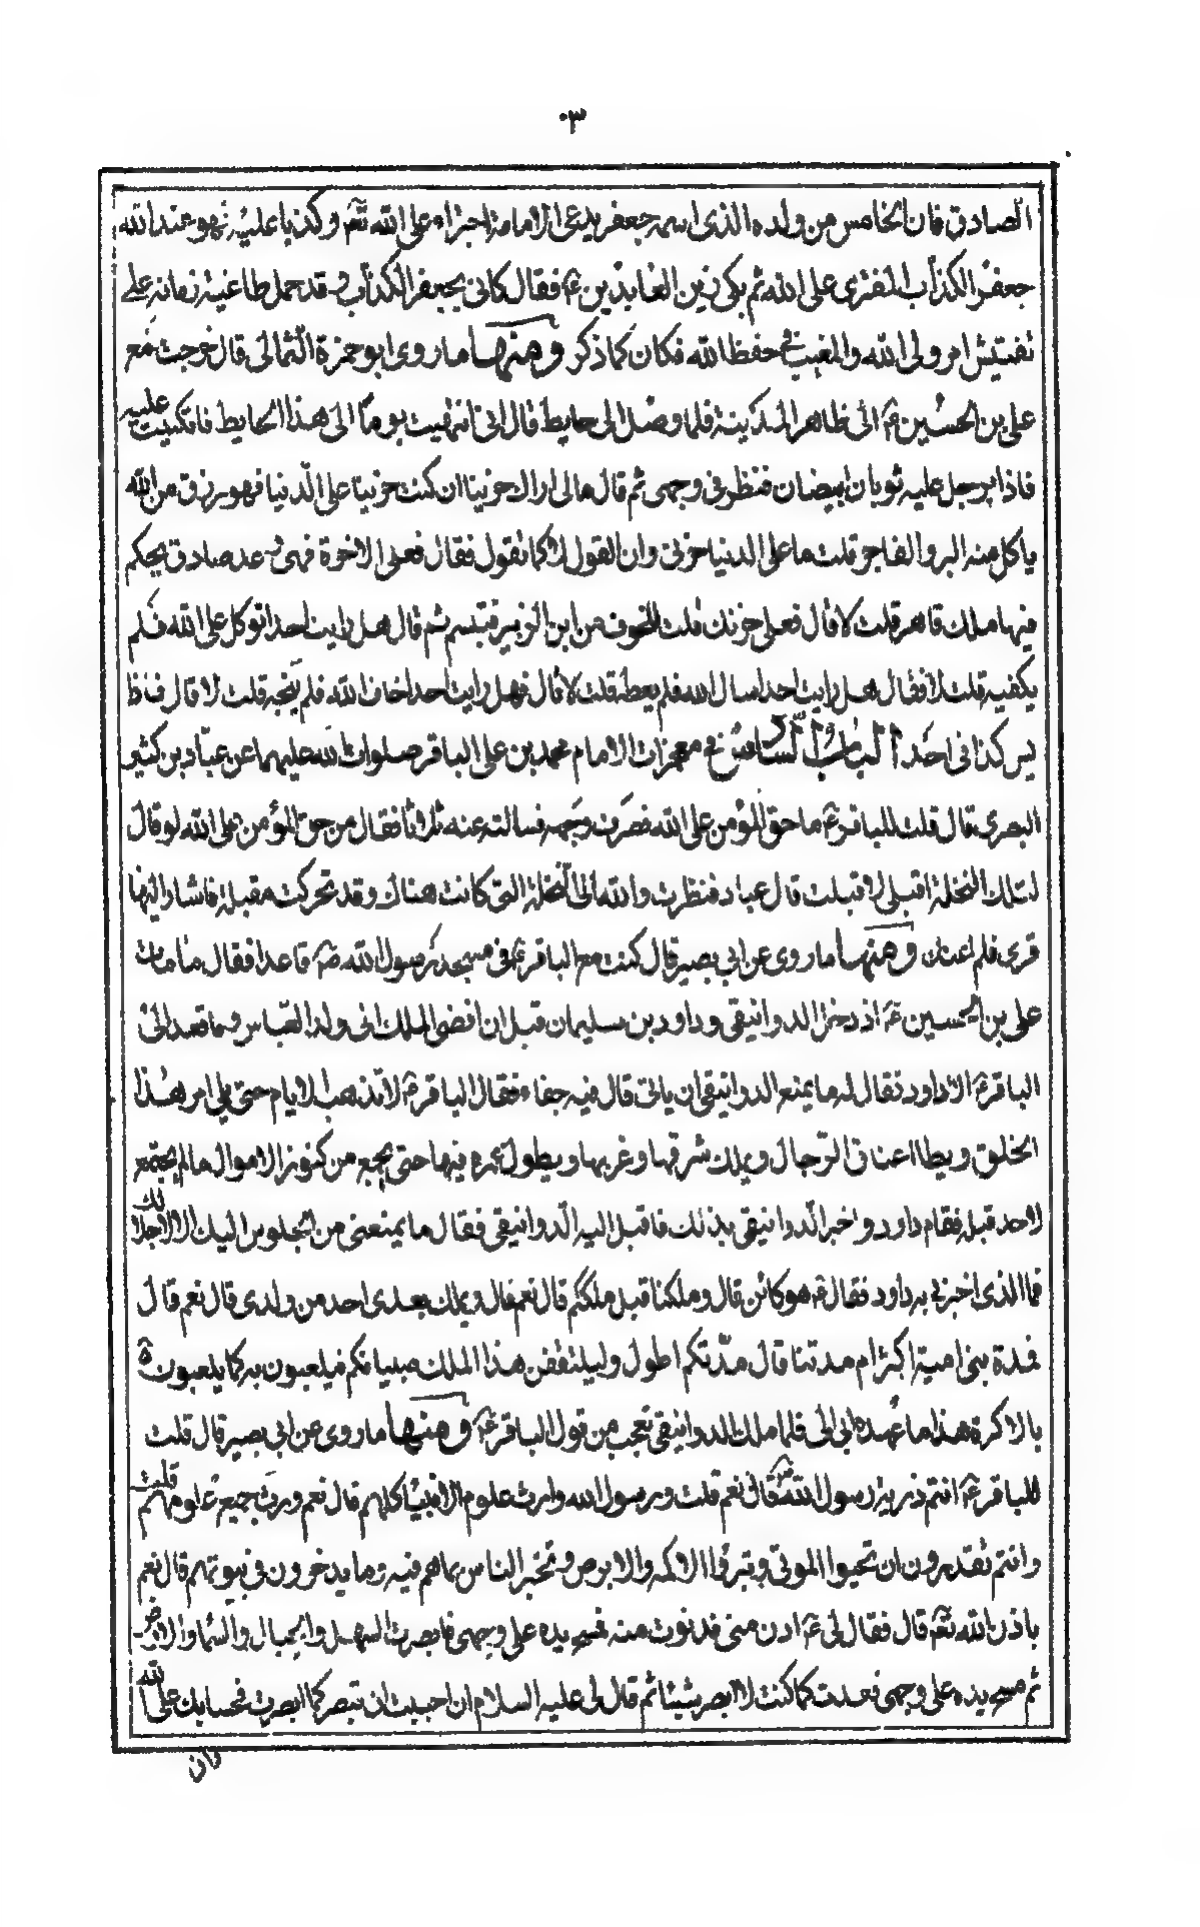 ٣٠
الصادق فان الخامس من ولده الذی اسمه جعفر یدعی الامامة اجتراء علی الله تعٓ و کذبا علیه فهو عند الله
جعفر الکذاب المفتری علی الله ثم بکی زین العابدین عٓ فقال کانی بجعفر الکذاب و قد حمل طاغیة زمانه علی
تفتیش امر ولی الله والمغیب فی حفظ الله فکان کما ذکر ومنها ما روی ابو حمزة الثمالی قال خرجت مع
علی بن الحسین عٓ الی ظاهر المدینة فلما وصل الی حایط قال انی انتهیت یوما الی هذا الحایط فاتکیت علیه
فاذا برجل علیه ثوبان ابیضان فنظر فی وجهی ثم قال مالی اراک حزینا ان کنت حزینا علی الدنیا فهو رزق من الله
یاکل منه البر والفاجر قلت ما علی الدنیا حزنی وان القول لکما تقول فقال فعلی الاخرة فهی وعد صادق یحکم
فیها ملک قاهر قلت لا قال فعلی حزنک قلت الخوف من ابن الزبیر فتبسم ثم قال هل رایت احدا توکل علی الله فلم
یکفیه قلت لا فقال هل رایت احدا سال الله فلم یعطه قلت لا قال فهل رایت احدا خاف الله فلم ینجه قلت لا قال فناظ
لیس کذا فی احد الباب السادس فی معجزات الامام محمد بن علی الباقر صلوات الله علیهما عن عباد بن کثیر
البصری قال قلت للباقر عٓ ما حق المؤمن علی الله فصرف وجهه فسالته عنه ثلاثا فقال من حق المؤمن علی الله لو قال
لتلک النخلة اقبلی لاقبلت قال عباد فنظرت والله الی النخلة التی کانت هناک و قد تحرکت مقبلة فاشار الیها
قری فلم اعنک ومنها ما روی عن ابی بصیر قال کنت مع الباقر عٓ فی مسجد رسول الله صٓ قاعدا فقال ما مات
علی بن الحسین عٓ اذ دخل الدوانیقی و داود بن سلیمان قبل ان افضی الملک الی ولد العباس وما قعد الی
الباقر عٓ الا داود فقال له ما یمنع الدوانیقی ان یاتی قال فیه جفاء فقال الباقر عٓ لا تذهب الایام حتی یلی امر هذا
الخلق و یطا اعناق الرجال و یملک شرقها و غربها و یطول عمره فیها حتی یجمع من کنوز الاموال ما لم یجتمع
لاحد قبله فقام داود و اخبر الدوانیقی بذلک فاقبل الیه الدوانیقی فقال ما یمنعنی من الجلوس الیک الا اجلالا لک
فما الذی اخبرنی به داود فقال عٓ هو کائن قال و ملکنا قبل ملککم قال نعم قال و یملک بعدی احد من ولدی قال نعم قال
فمدة بنی امیة اکثر ام مدتنا قال مدتکم اطول و لیلتقفن هذا الملک صبیانکم فیلعبون به کما یلعبون
بالاکرة هذا ما عهده الی ابی فلما ملک الدوانیقی تعجب من قول الباقر عٓ ومنها ما روی عن ابی بصیر قال قلت
للباقر عٓ انتم ذریة رسول الله صٓ قال نعم قلت و رسول الله وارث علوم الانبیاء کلهم قال نعم ورث جمیع علومهم قلت
وانتم تقدرون ان تحیوا الموتی و تبرؤا الاکمه والابرص و تخبر الناس بما هم فیه وما یدخرون فی بیوتهم قال نعم
باذن الله تعٓ قال فقال لی عٓ ادن منی فدنوت منه فمسح یده علی وجهی فابصرت السهل والجبال والسماء والارض
ثم مسح یده علی وجهی فعدت کما کنت لا ابصر شیئا ثم قال لی علیه السلام ان احببت ان تبصر کما ابصرت فحسابک علی الله
وان